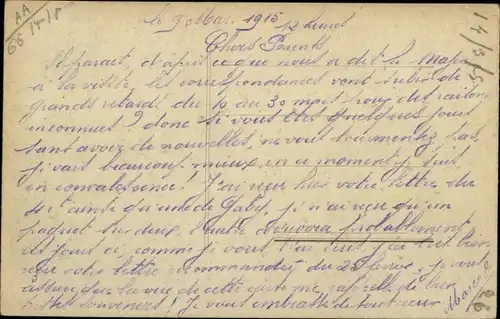 AA
66 14-18
14/3/15
le 9 Mars 1915
12 heures
Chers Parents
Il parait, d'après ce que nous a dit le Major
à la visite, les correspondances vont subir de
grands retards du 10 au 30 mars pour des raisons
inconnues? donc si vous êtes quelques jours
sans avoir de nouvelles, ne vous tourmentez pas,
je vais beaucoup mieux en ce moment, je suis
en convalescence. J'ai reçu hier votre lettre du
4 et ainsi qu'une de Gaby, je n'ai reçu qu'un
paquet sur deux, l'autre probablement
ces jours ci, comme je vous l'ai écrit, j'ai bien
reçu votre lettre recommandée du 25 février, je vous
assure que la vue de cette carte me rappelle de bien
souvenirs! Je vous embrasse de tout cœur
Marcel